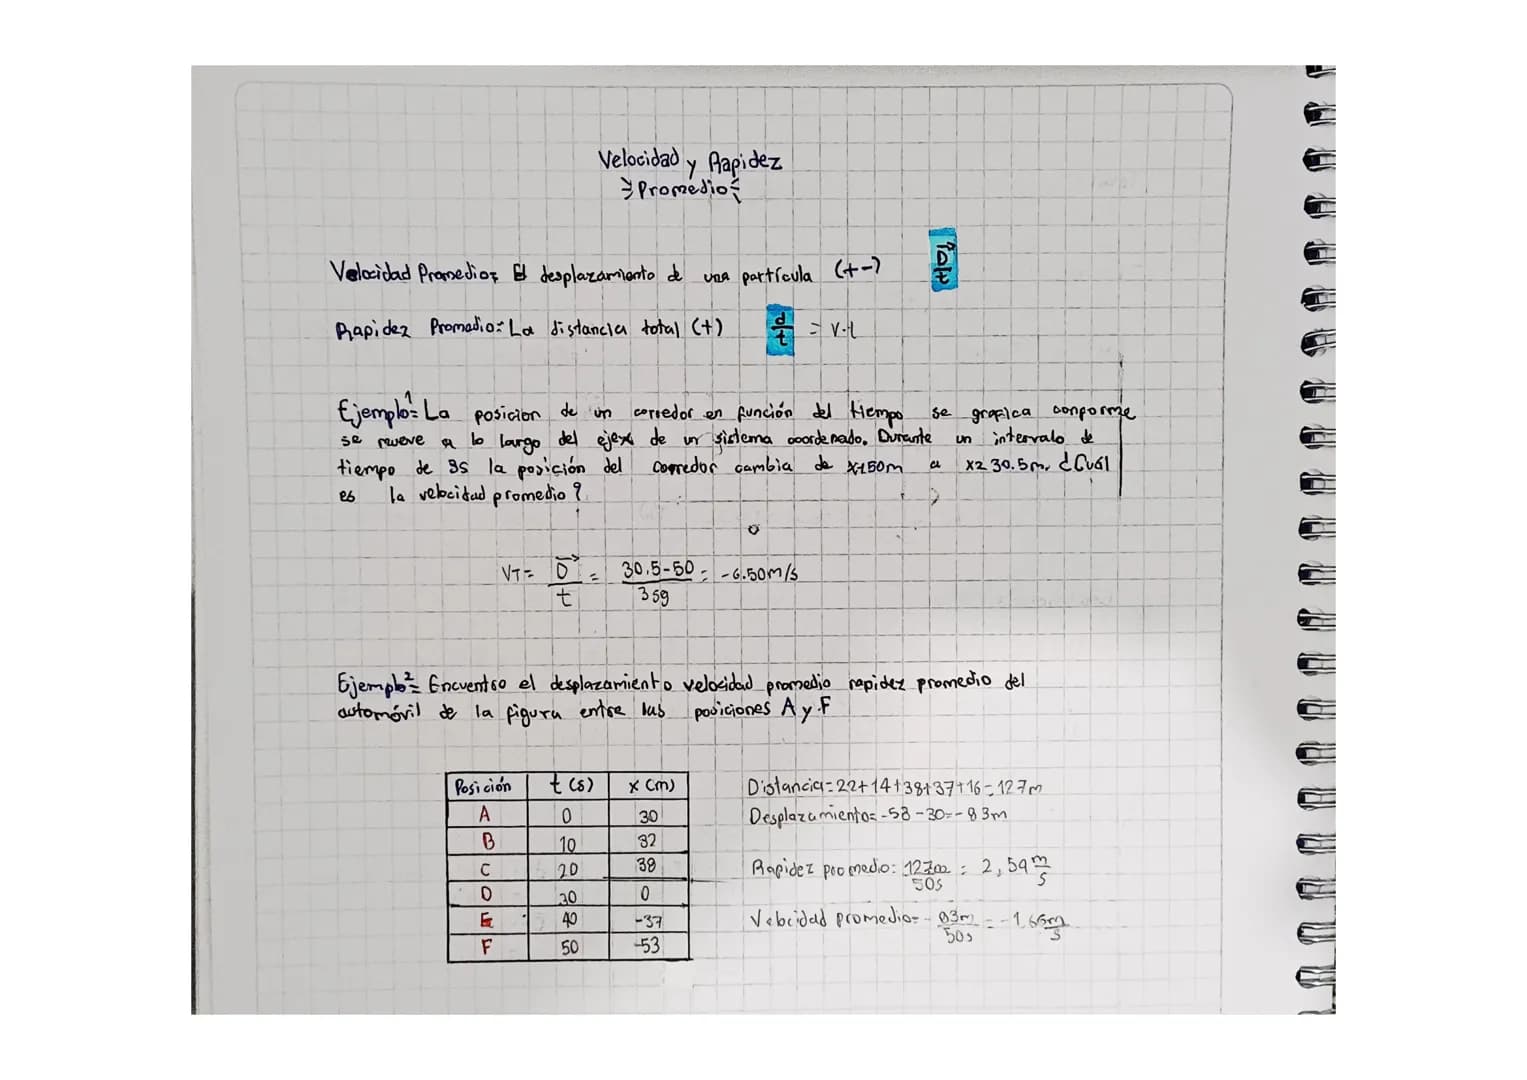 Velocidad y Rapidez
Promedio
Velocidad Promedio: El desplazamiento de una partícula (+-) D/t
Rapidez Promedio: La distancia total (+) d/t = v.t
Ejemplo 1: La posicion de un corredor en función del tiempo se grafica conforme
se mueve a lo largo del eje x de un sistema coordenado. Durante un intervalo de
tiempo de 3s la posición del corredor cambia de x150m a x2 30.5m. ¿Cuál
es la velocidad promedio?
VT= D/t = 30.5-50/3sg = -6.50m/s
Ejemplo 2: Encuentro el desplazamiento velocidad promedio rapidez promedio del
automóvil de la figura entre las posiciones A y F
Posición t (s) x (m)
A 0 30
B 10 32
C 20 38
D 30 0
E 40 -37
F 50 -53
Distancia=22+14+38+37+16=127m
Desplazamiento=-53-30=-83m
Rapidez promedio: 127m/50s = 2,59 m/s
Velocidad promedio= -83m/50s = -1,66m/s